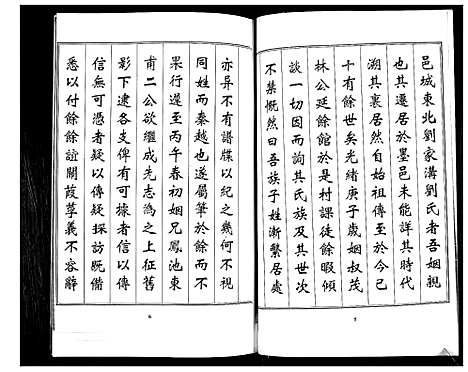 邑城東北劉家溝劉氏者吾姻親
也其遷居於墨邑未能詳其時代
溯其裏居然自前明以至於今已
十有餘世矣光緒庚子歲姻叔茂
林公廷餘館於是村課徒餘暇傾
談一切因而詢其氏族及其世次
不禁慨然曰吾族子姓漸繁居處
亦異不有譜牒以紀之幾何不視
同姓而秦越也遂屬筆於餘而不
果行遲至丙午春初姻兄鳳池東
甫二公欲繼成先志為之上征舊
影下逮各支俾有可據者信以傳
信無可憑者疑以傳疑採訪既備
悉以付餘餘誼關葭莩義不容辭